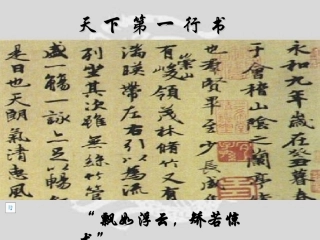 天下第一行书
永和九年歲在癸丑暮春
于會稽山陰之蘭亭脩
也羣賢畢至少長咸集
有崇山峻領茂林脩竹又有
湍暎帶左右引以爲流
列坐其次雖無絲竹管
盛一觴一詠亦足以暢
是日也天朗氣清惠風
“飘如浮云，矫若惊
龙”